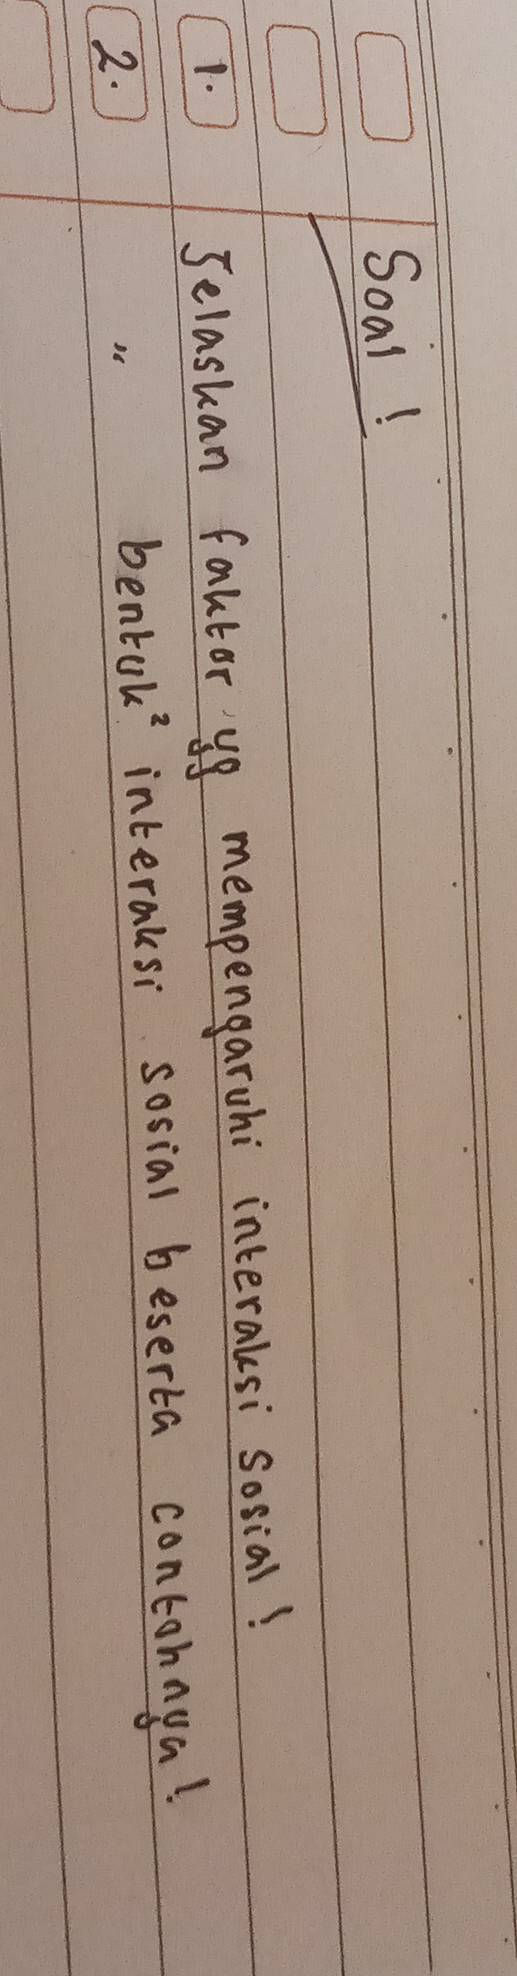 Soal !
1. Jelaskan faktor yg mempengaruhi interaksi sosial !
2. " bentuk² interaksi sosial beserta contohnya !